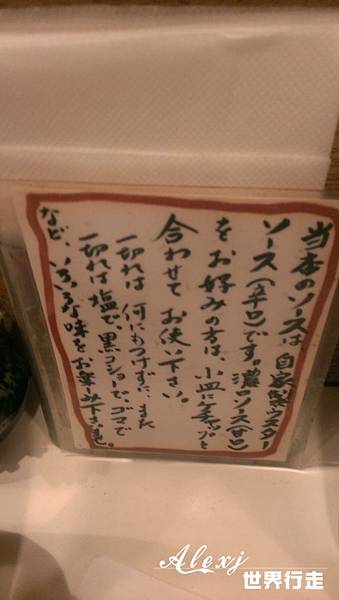 当店のソースは、自家製ウスター
ソース(辛口)です。濃口ソース(甘口)
をお好みの方は、小皿にケチャップと
合わせてお使い下さい。
一切れは何にもつけずに、また
一切れは塩で、黒コショーで、ゴマで
など、いろいろな味をお楽しみ下さいませ。
Alexj
世界行走